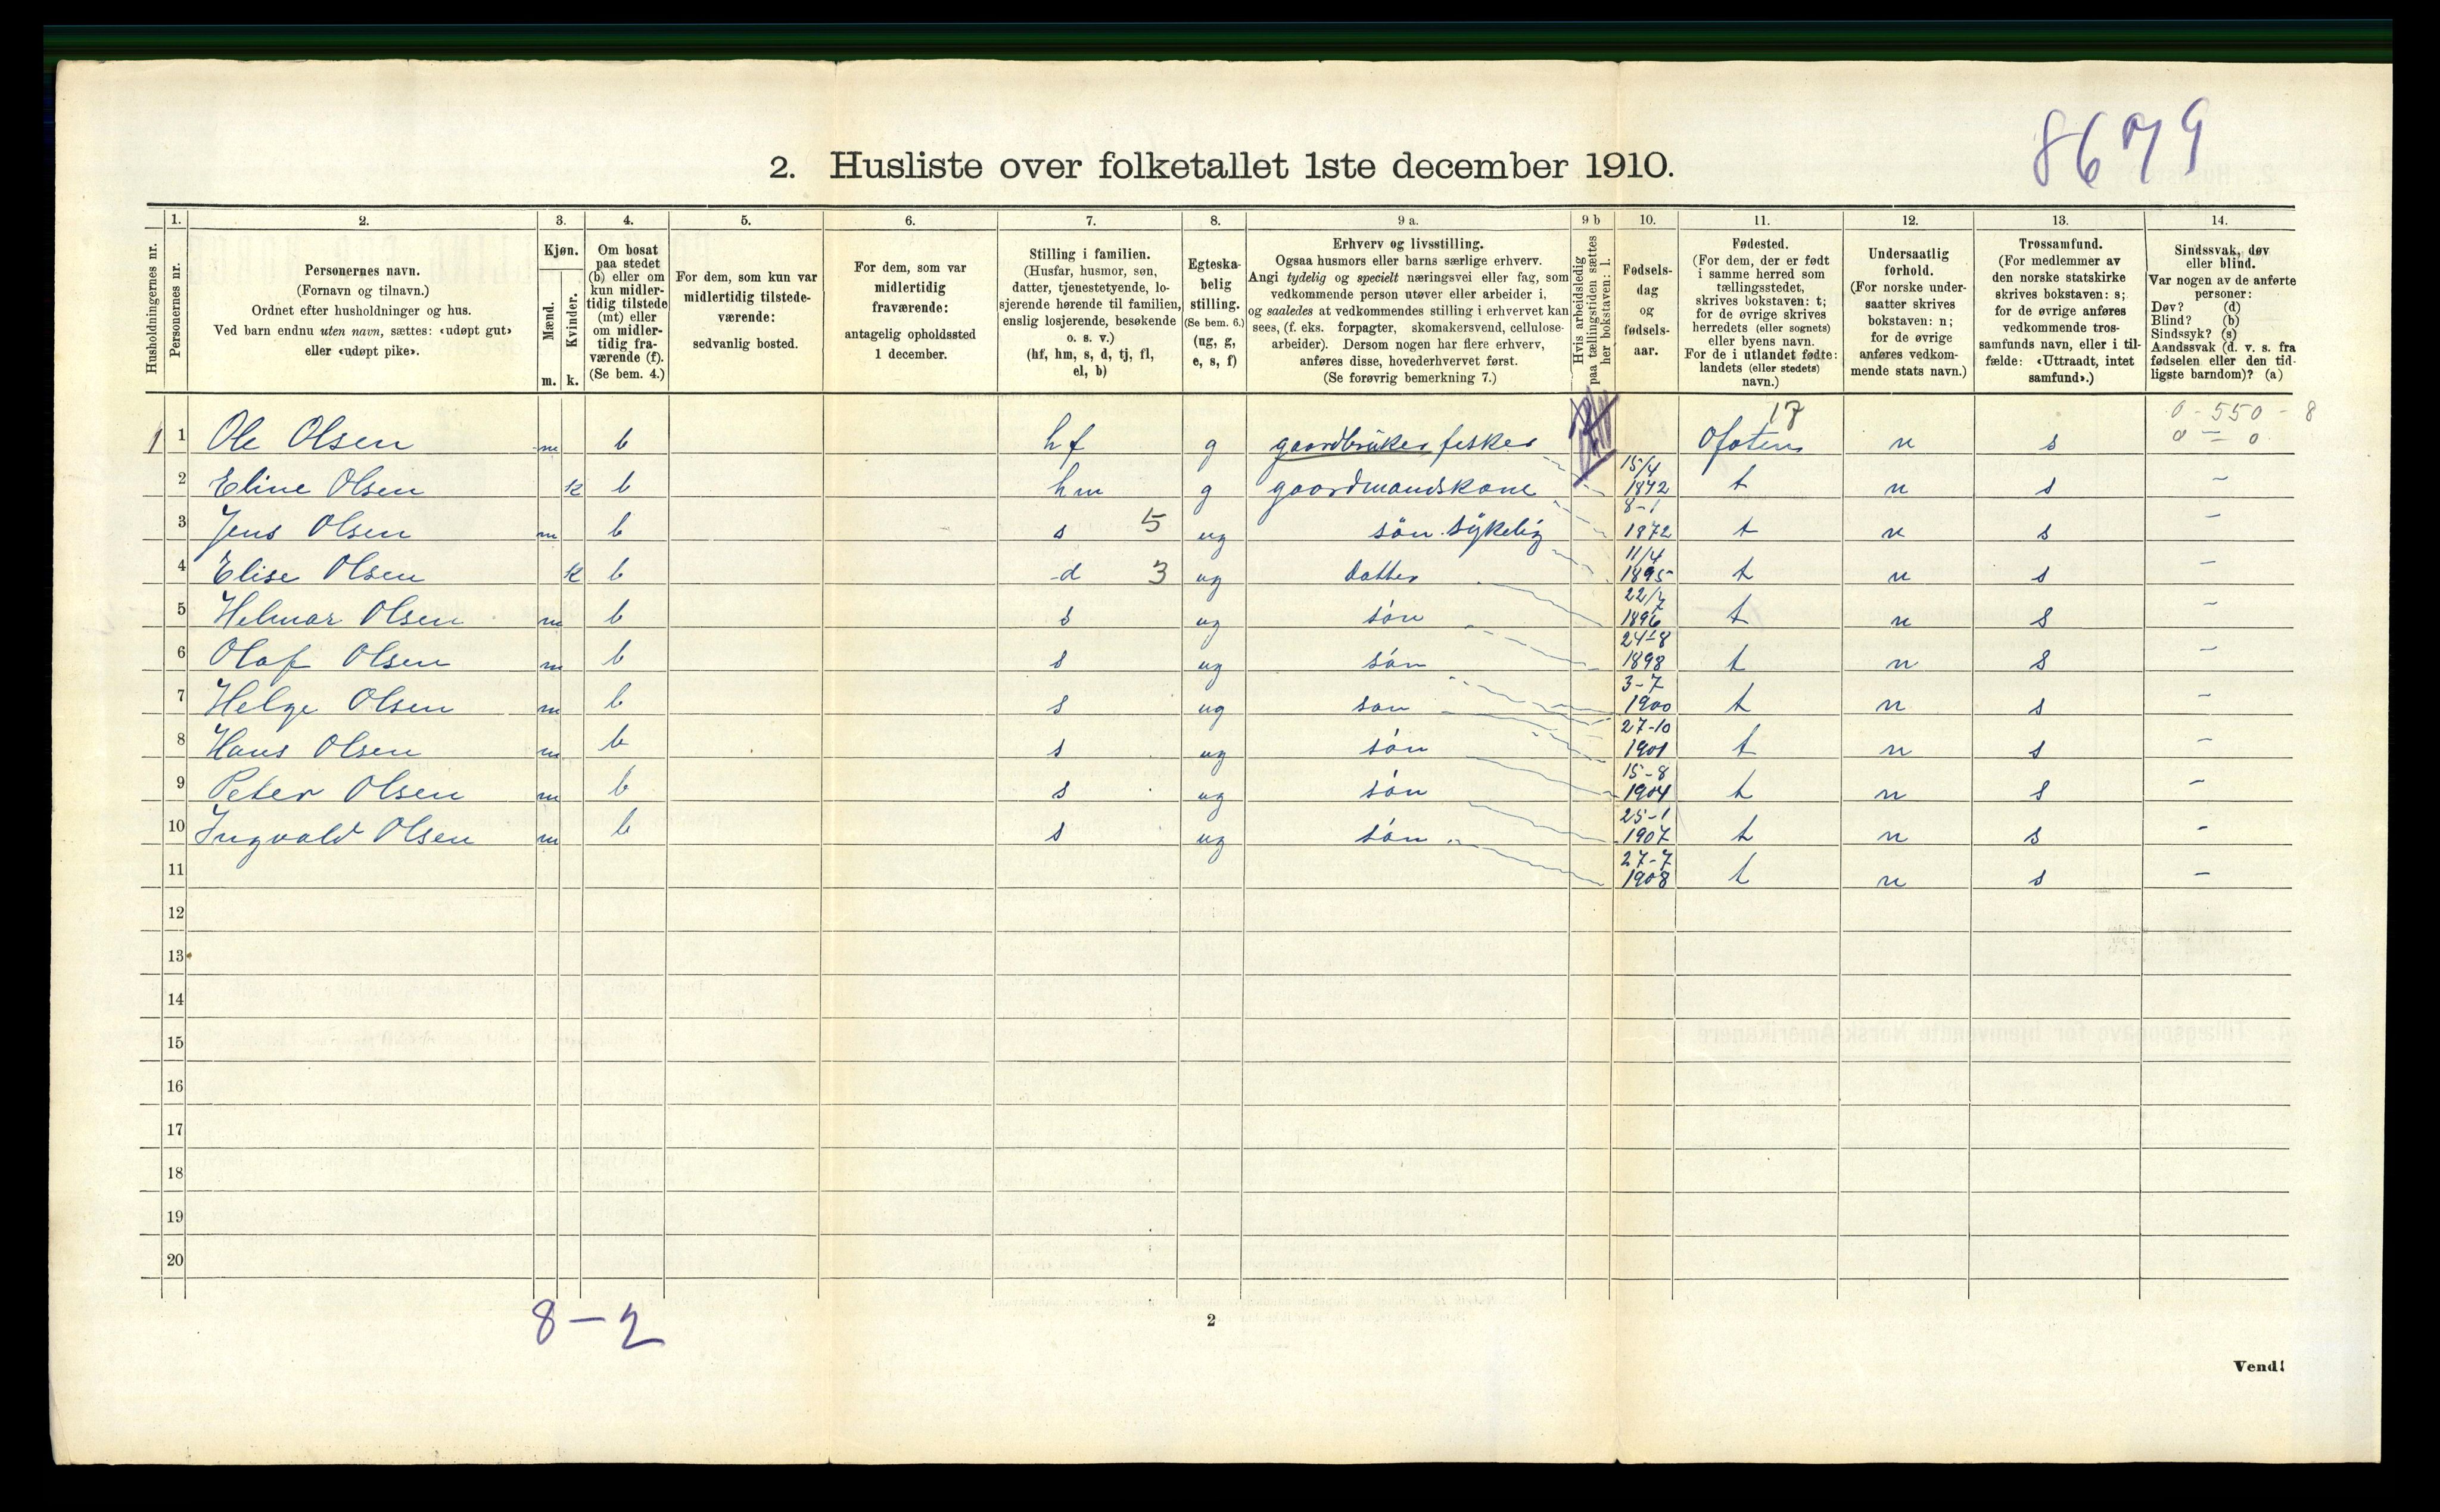 8679
2. Husliste over folketallet 1ste december 1910.
Husholdningernes nr.
1.
Personernes nr.
2.
Personernes navn.
(Fornavn og tilnavn.)
Ordnet efter husholdninger og hus.
Ved barn endnu uten navn, sættes: «udøpt gut»
eller «udøpt pike».
3.
Kjøn.
Mænd.
Kvinder.
m. k.
4.
Om bosat
paa stedet
(b) eller om
kun midler-
tidig tilstede
(mt) eller
om midler-
tidig fra-
værende (f).
(Se bem. 4.)
5.
For dem, som kun var
midlertidig tilstede-
værende:
sedvanlig bosted.
6.
For dem, som var
midlertidig
fraværende:
antagelig opholdssted
1 december.
7.
Stilling i familien.
(Husfar, husmor, søn,
datter, tjenestetyende, lo-
sjerende hørende til familien,
enslig losjerende, besøkende
o. s. v.)
(hf, hm, s, d, tj, fl,
el, b)
8.
Egteska-
belig
stilling.
(Se bem. 6.)
(ug, g,
e, s, f)
9 a.
Erhverv og livsstilling.
Ogsaa husmors eller barns særlige erhverv.
Angi tydelig og specielt næringsvei eller fag, som
vedkommende person utøver eller arbeider i,
og saaledes at vedkommendes stilling i erhvervet kan
sees, (f. eks. forpagter, skomakersvend, cellulose-
arbeider). Dersom nogen har flere erhverv,
anføres disse, hovederhvervet først.
(Se forøvrig bemerkning 7.)
9 b
Hvis arbeidsledig
paa tællingstiden sættes
her bokstaven: l.
10.
Fødsels-
dag
og
fødsels-
aar.
11.
Fødested.
(For dem, der er født
i samme herred som
tællingsstedet,
skrives bokstaven: t;
for de øvrige skrives
herredets (eller sognets)
eller byens navn.
For de i utlandet fødte:
landets (eller stedets)
navn.)
12.
Undersaatlig
forhold.
(For norske under-
saatter skrives
bokstaven: n;
for de øvrige
anføres vedkom-
mende stats navn.)
13.
Trossamfund.
(For medlemmer av
den norske statskirke
skrives bokstaven: s;
for de øvrige anføres
vedkommende tros-
samfunds navn, eller i til-
fælde: «Uttraadt, intet
samfund».)
14.
Sindssvak, døv
eller blind.
Var nogen av de anførte
personer:
Døv? (d)
Blind? (b)
Sindssyk? (s)
Aandssvak (d. v. s. fra
fødselen eller den tid-
ligste barndom)? (a)
17 0 - 550 - 8
1 1 Ole Olsen m b hf g gaardbruker fisker Ofoten n s 0 — 0
2 Eline Olsen k b hm g gaardmandskone 15/4 1842 t n s –
3 Jens Olsen m b s 5 ug søn sykelig 8-1 1872 t n s –
4 Elise Olsen k b d 3 ug datter 11/4 1895 t n s –
5 Helmar Olsen m b s ug søn 22/7 1896 t n s –
6 Olaf Olsen m b s ug søn 24-8 1898 t n s –
7 Helge Olsen m b s ug søn 3-7 1900 t n s –
8 Hans Olsen m b s ug søn 27-10 1901 t n s –
9 Peter Olsen m b s ug søn 15-8 1904 t n s –
10 Ingvald Olsen m b s ug søn 25-1 1907 t n s –
11 27-7 1908 t n s –
12
13
14
15
16
17
18
19
20
8 – 2
2
Vend!